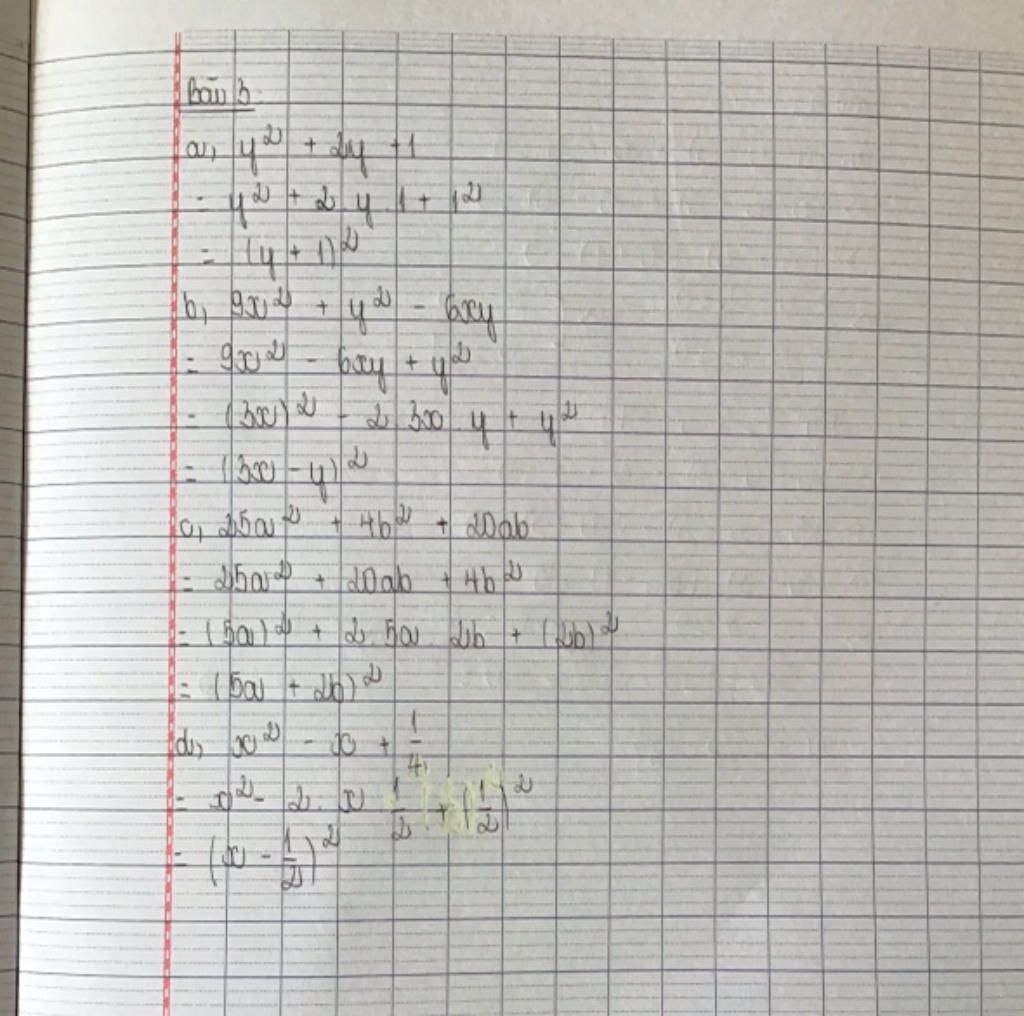 Bài 3
a, y² + 2y + 1
= y² + 2 y 1 + 1²
= (y + 1)²
b, 9x² + y² - 6xy
= 9x² - 6xy + y²
= (3x)² - 2 3x y + y²
= (3x - y)²
c, 25a² + 4b² + 20ab
= 25a² + 20ab + 4b²
= (5a)² + 2. 5a 2b + (2b)²
= (5a + 2b)²
d, x² - x + 1/4
= x² - 2. x 1/2 + (1/2)²
= (x - 1/2)²